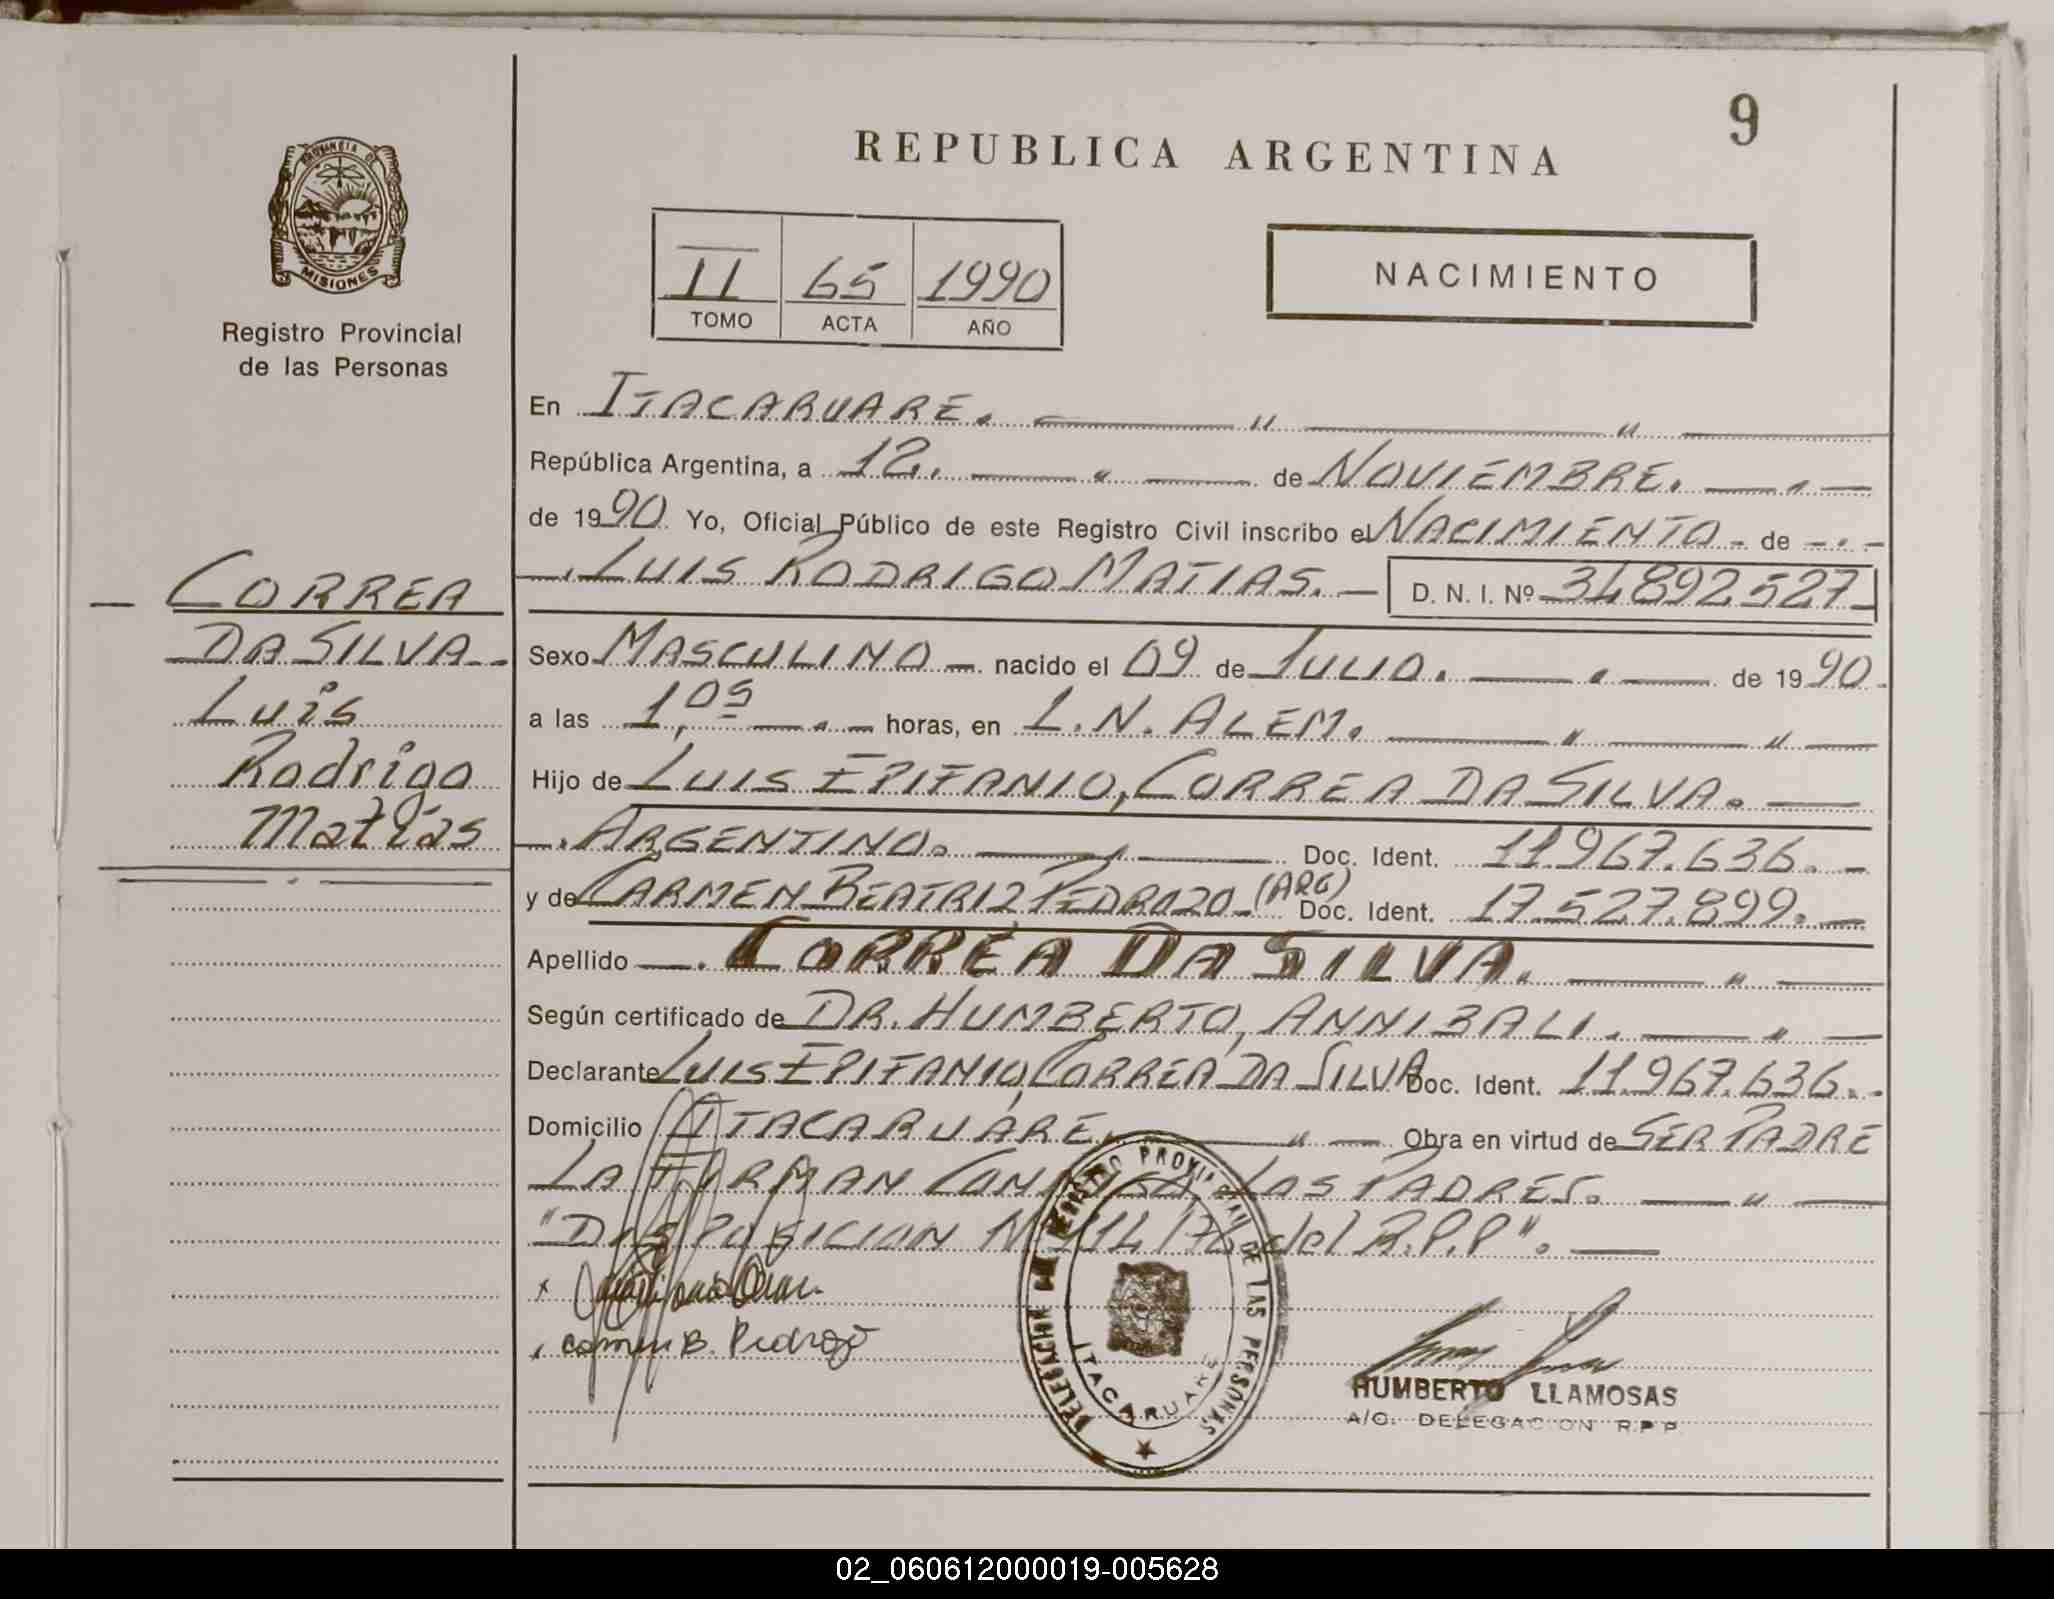 9
REPUBLICA ARGENTINA
PROVINCIA DE
MISIONES
Registro Provincial
de las Personas
II 65 1990
TOMO ACTA AÑO
NACIMIENTO
CORREA
DA SILVA
Luis
Rodrigo
Matías
En ITACARUARE.
República Argentina, a 12. de NOVIEMBRE.
de 1990 Yo, Oficial Público de este Registro Civil inscribo el NACIMIENTO de
LUIS RODRIGO MATIAS. D. N. I. Nº 34892527
Sexo MASCULINO nacido el 09 de JULIO. de 1990
a las 1,05 horas, en L. N. ALEM.
Hijo de LUIS EPIFANIO, CORREA DA SILVA.
ARGENTINO. Doc. Ident. 11.967.636.
y de CARMEN BEATRIZ PEDROZO (ARG) Doc. Ident. 17.527.899.
Apellido CORREA DA SILVA.
Según certificado de DR. HUMBERTO, ANNIBALI.
Declarante LUIS EPIFANIO, CORREA DA SILVA Doc. Ident. 11.967.636.
Domicilio ITACARUARE. Obra en virtud de SER PADRE
LA FIRMAN LOS PADRES.
"DISPOSICION del R.P.P".
x
x Carmen B. Pedrozo
DELEGACION REGISTRO PROVINCIAL DE LAS PERSONAS
ITACARUARE
HUMBERTO LLAMOSAS
A/C. DELEGACION R.P.P.
02_060612000019-005628